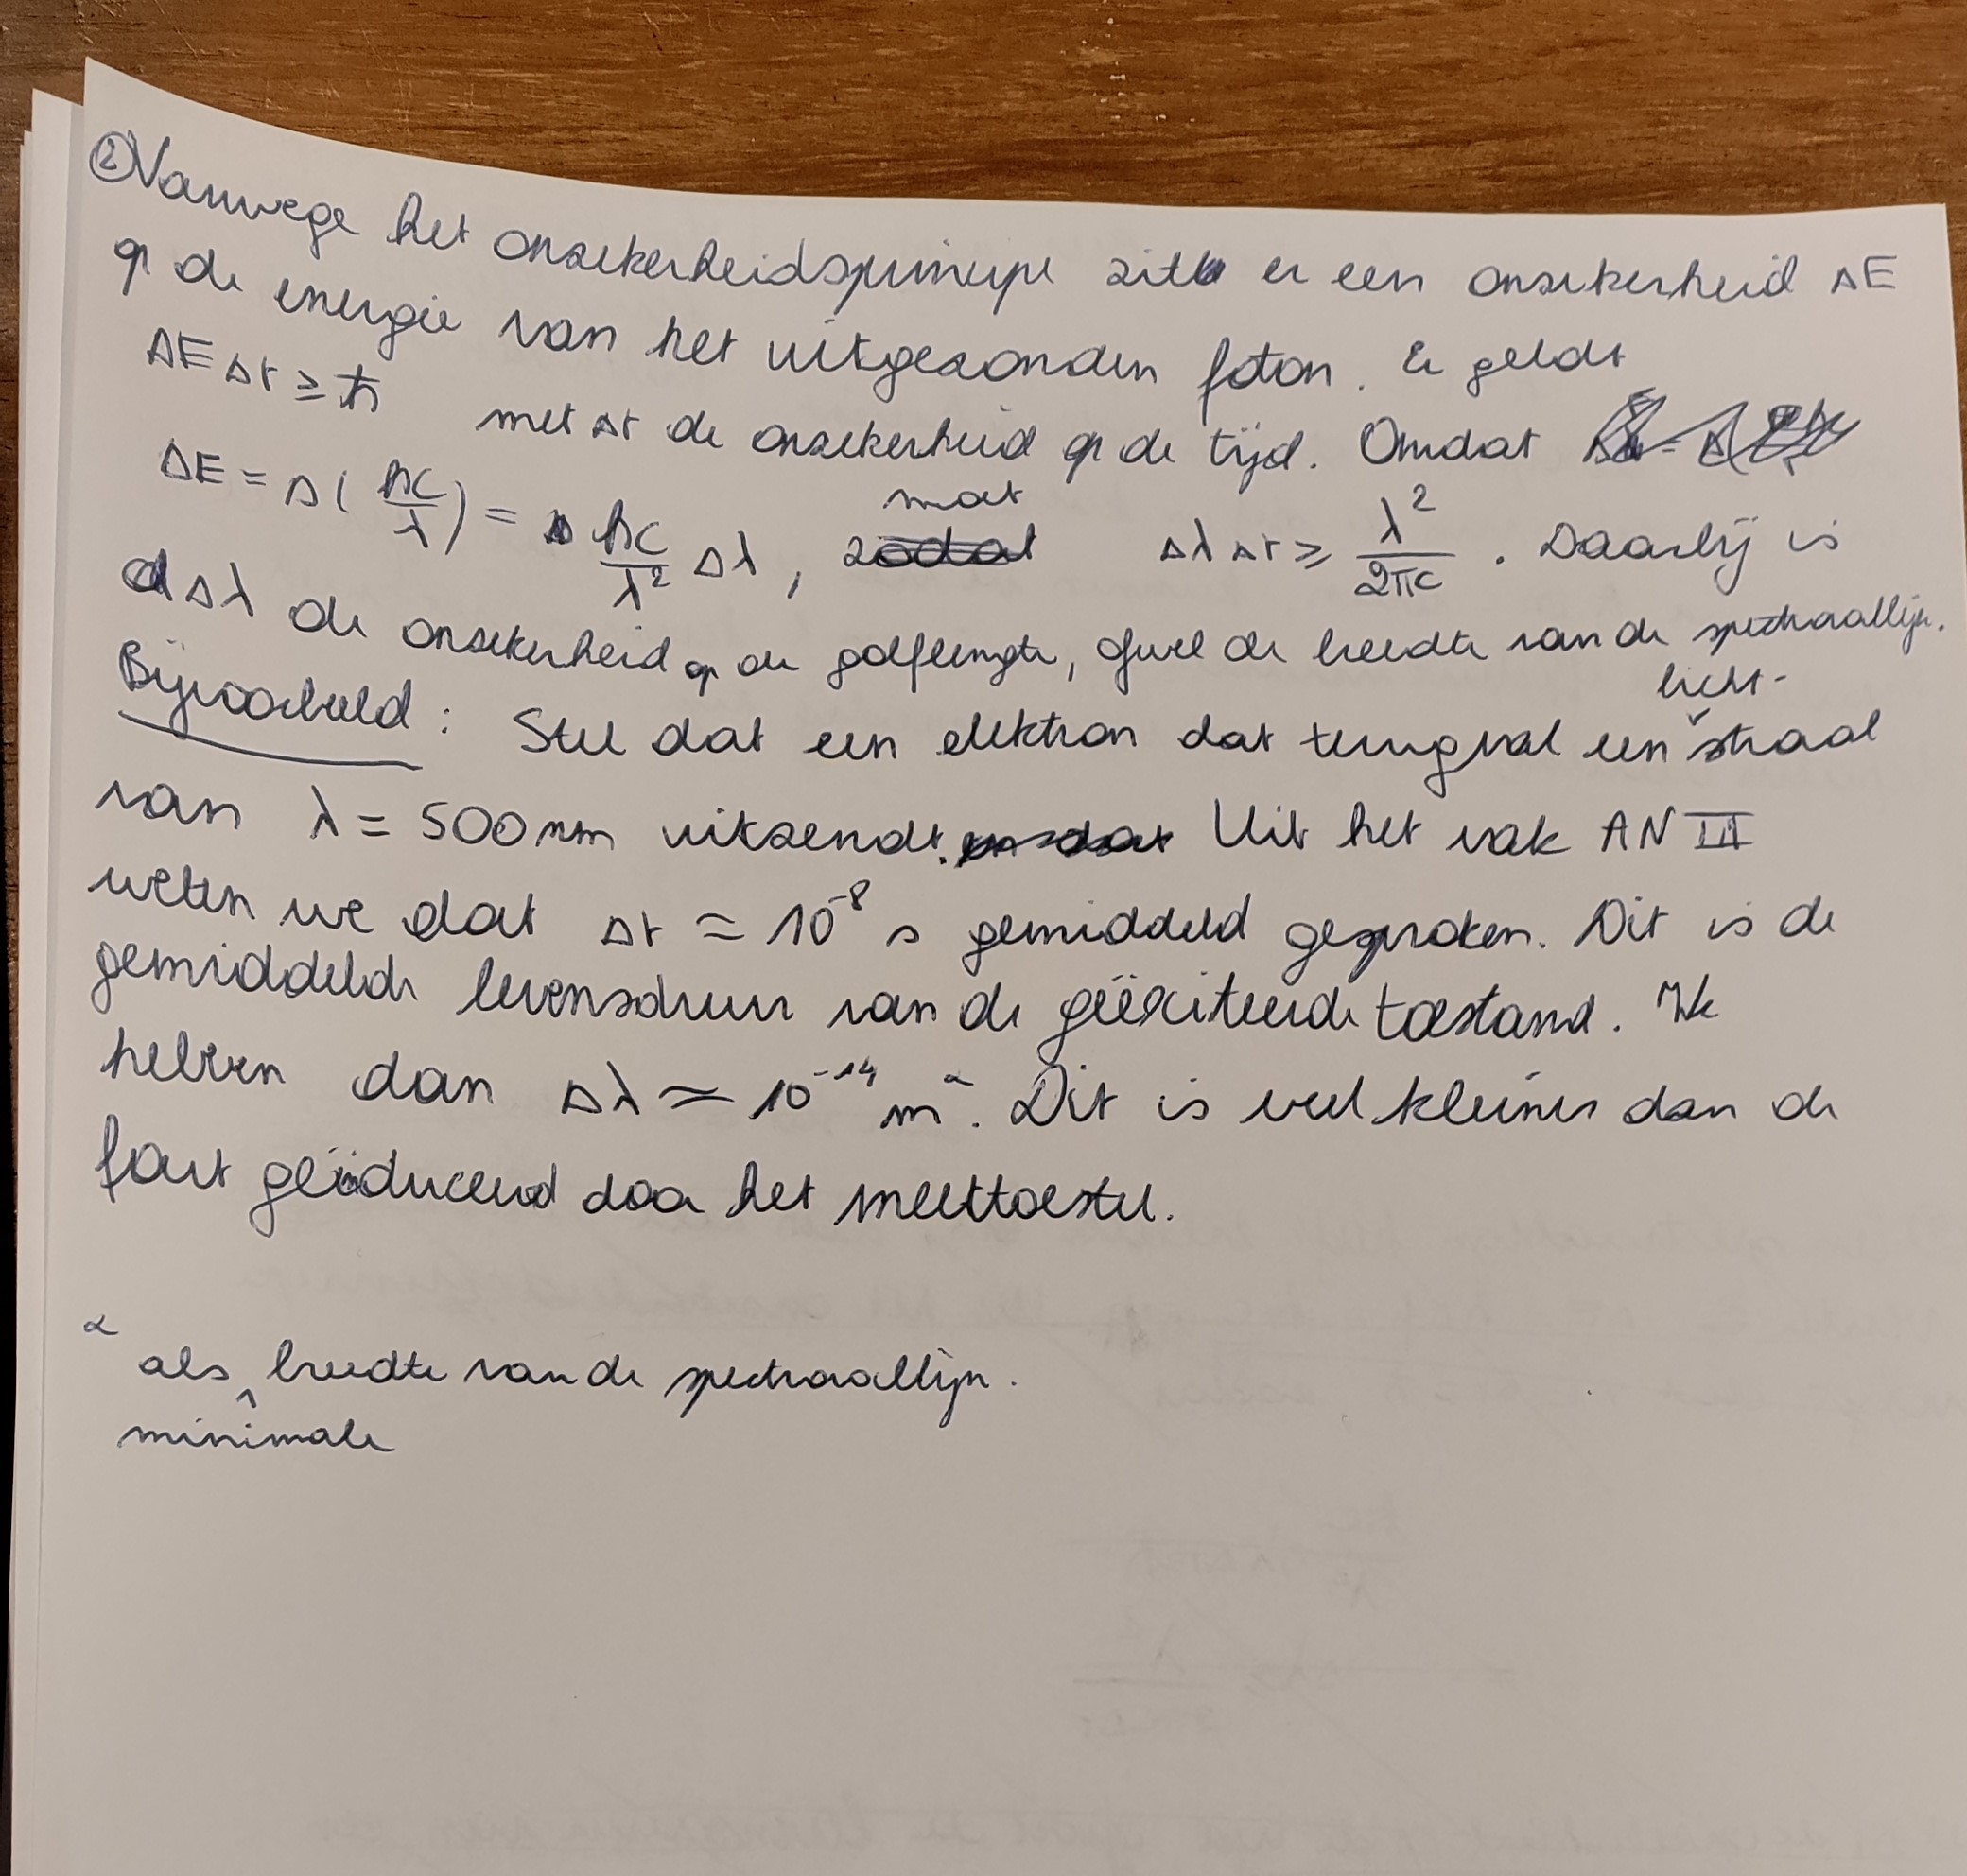 ② Vanwege het onzekerheidsprincipe zit er een onzekerheid ΔE
op de energie van het uitgezonden foton. Er geldt
ΔEΔt ≥ ħ met Δt de onzekerheid op de tijd. Omdat
ΔE = Δ(hc/λ) = hc/λ² Δλ, moet ΔλΔt ≥ λ²/2πc. Daarbij is
Δλ de onzekerheid op de golflengte, ofwel de breedte van de spectraallijn.
Bijvoorbeeld: Stel dat een elektron dat terugval een licht-straal
van λ = 500 nm uitzendt. Uit het vak AN III
weten we dat Δt ≈ 10⁻⁸ s gemiddeld gesproken. Dit is de
gemiddelde levensduur van de geëxciteerde toestand. We
hebben dan Δλ ≈ 10⁻¹⁴ m^α. Dit is veel kleiner dan de
fout geïnduceerd door het meettoestel.
α als minimale breedte van de spectraallijn.